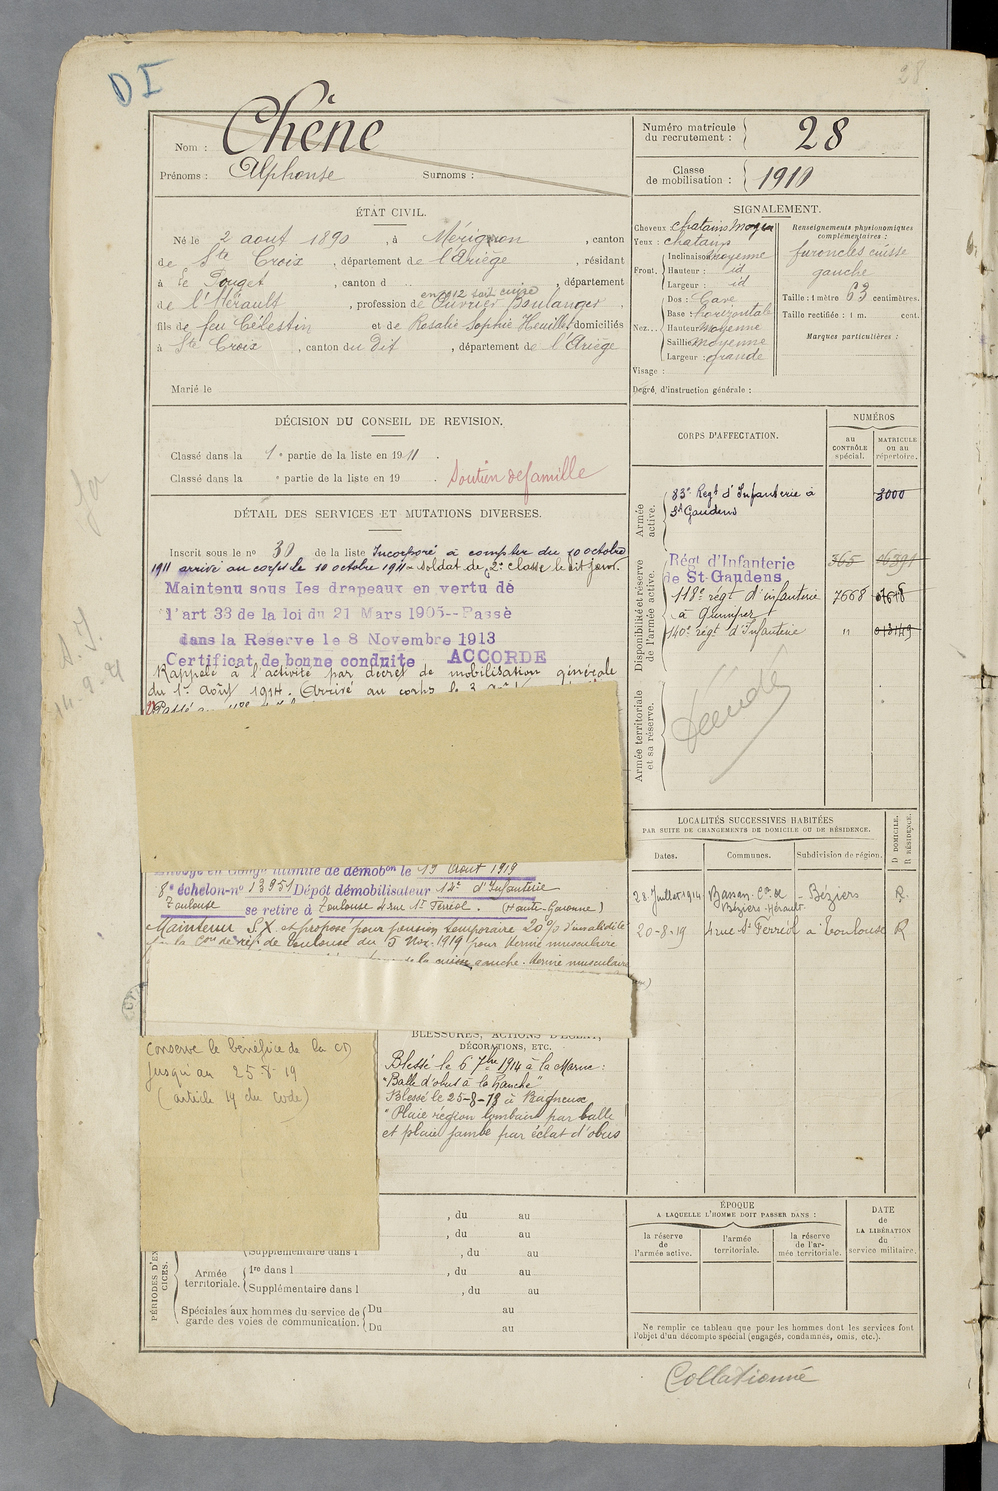 DI
28
Nom : Chêne
Prénoms : Alphonse Surnoms :
Numéro matricule du recrutement : 28
Classe de mobilisation : 1910
ÉTAT CIVIL.
Né le 2 aout 1890, à Mérignon, canton
de Ste Croix, département de l'Ariège, résidant
à Le Pouget, canton d , département
de l'Hérault, profession de Ouvrier Boulanger
fils de feu Célestin et de Rosalie Sophie Heuillet domiciliés
à Ste Croix, canton du dit, département de l'Ariège
Marié le
SIGNALEMENT.
Cheveux chatains moyen
Yeux : chatains
Front, Inclinaison moyenne
Hauteur : id
Largeur : id
Nez... Dos : Cave
Base : horizontale
Hauteur moyenne
Saillie moyenne
Largeur : grande
Visage :
Degré d'instruction générale :
Renseignements physionomiques complémentaires :
furoncles cuisse
gauche
Taille : 1 mètre 63 centimètres.
Taille rectifiée : 1 m. cent.
Marques particulières :
DÉCISION DU CONSEIL DE REVISION.
Classé dans la 1e partie de la liste en 1911.
Classé dans la e partie de la liste en 19 Soutien de famille
DÉTAIL DES SERVICES ET MUTATIONS DIVERSES.
Inscrit sous le no 30 de la liste Incorporé à compter du 10 octobre
1911 arrivé au corps le 10 octobre 1911 soldat de 2e classe le dit jour.
Maintenu sous les drapeaux en vertu de
l'art 33 de la loi du 21 Mars 1905--Passé
dans la Reserve le 8 Novembre 1913
Certificat de bonne conduite ACCORDE
Rappelé à l'activité par décret de mobilisation générale
du 1er Août 1914. Arrivé au corps le 3
CORPS D'AFFECTATION.
NUMÉROS
au CONTRÔLE spécial.
MATRICULE ou au répertoire.
Armée active.
83e Regt d'Infanterie à 8000
St Gaudens
Disponibilité et réserve de l'armée active.
Régt d'Infanterie 365
de St-Gaudens
118e régt d'infanterie 7668
à Quimper
140e régt d'Infanterie "
Armée territoriale et sa réserve.
le 19 Aout 1919
8e échelon-no 13951 Dépôt démobilisateur 14e d'Infanterie
Toulouse se retire à Toulouse 4 rue St Ferréol. (Haute-Garonne)
Maintenu S.X. et proposé pour pension temporaire 20% d'invalidité
de Toulouse du 5 Nov. 1919 pour hernie musculaire
gauche. hernie musculaire
LOCALITÉS SUCCESSIVES HABITÉES
PAR SUITE DE CHANGEMENTS DE DOMICILE OU DE RÉSIDENCE.
Dates. Communes. Subdivision de région. D DOMICILE. R RÉSIDENCE.
28 Juillet 1914 Bassan. Con de Béziers R.
Béziers Hérault
20-8-19 4 rue St Ferréol à Toulouse R
Conserve le bénéfice de la CD
jusqu'au 25-8-19
(article 19 du code)
BLESSURES, ACTIONS D'ÉCLAT,
DÉCORATIONS, ETC.
Blessé le 6 7bre 1914 à la Marne :
"Balle d'obus à la hanche"
Blessé le 25-8-18 à Bagneux
"Plaie région lombaire par balle
et plaie jambe par éclat d'obus
PÉRIODES D'EXERCICES.
, du au
, du au
Supplémentaire dans l , du au
Armée territoriale. 1re dans l , du au
Supplémentaire dans l , du au
Spéciales aux hommes du service de garde des voies de communication. Du au
Du au
ÉPOQUE
A LAQUELLE L'HOMME DOIT PASSER DANS :
la réserve de l'armée active.
l'armée territoriale.
la réserve de l'armée territoriale.
DATE de LA LIBÉRATION du service militaire.
Ne remplir ce tableau que pour les hommes dont les services font
l'objet d'un décompte spécial (engagés, condamnés, omis, etc.).
Collationné